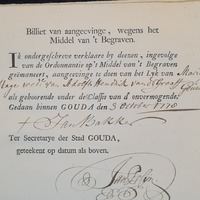 Billiet van aangeevinge, wegens het
Middel van 't Begraven.
Ik ondergeschreve verklaare by deezen, ingevolge
van de Ordonnantie op 't Middel van 't Begraven
geëmaneert, aangeevinge te doen van het Lyk van Maria
als gehoorende onder de Classis van d'onvermogende:
Gedaan binnen GOUDA den 3 October 1770
+ Jan Bakker
Ter Secretarye der Stad GOUDA,
geteekent op datum als boven.